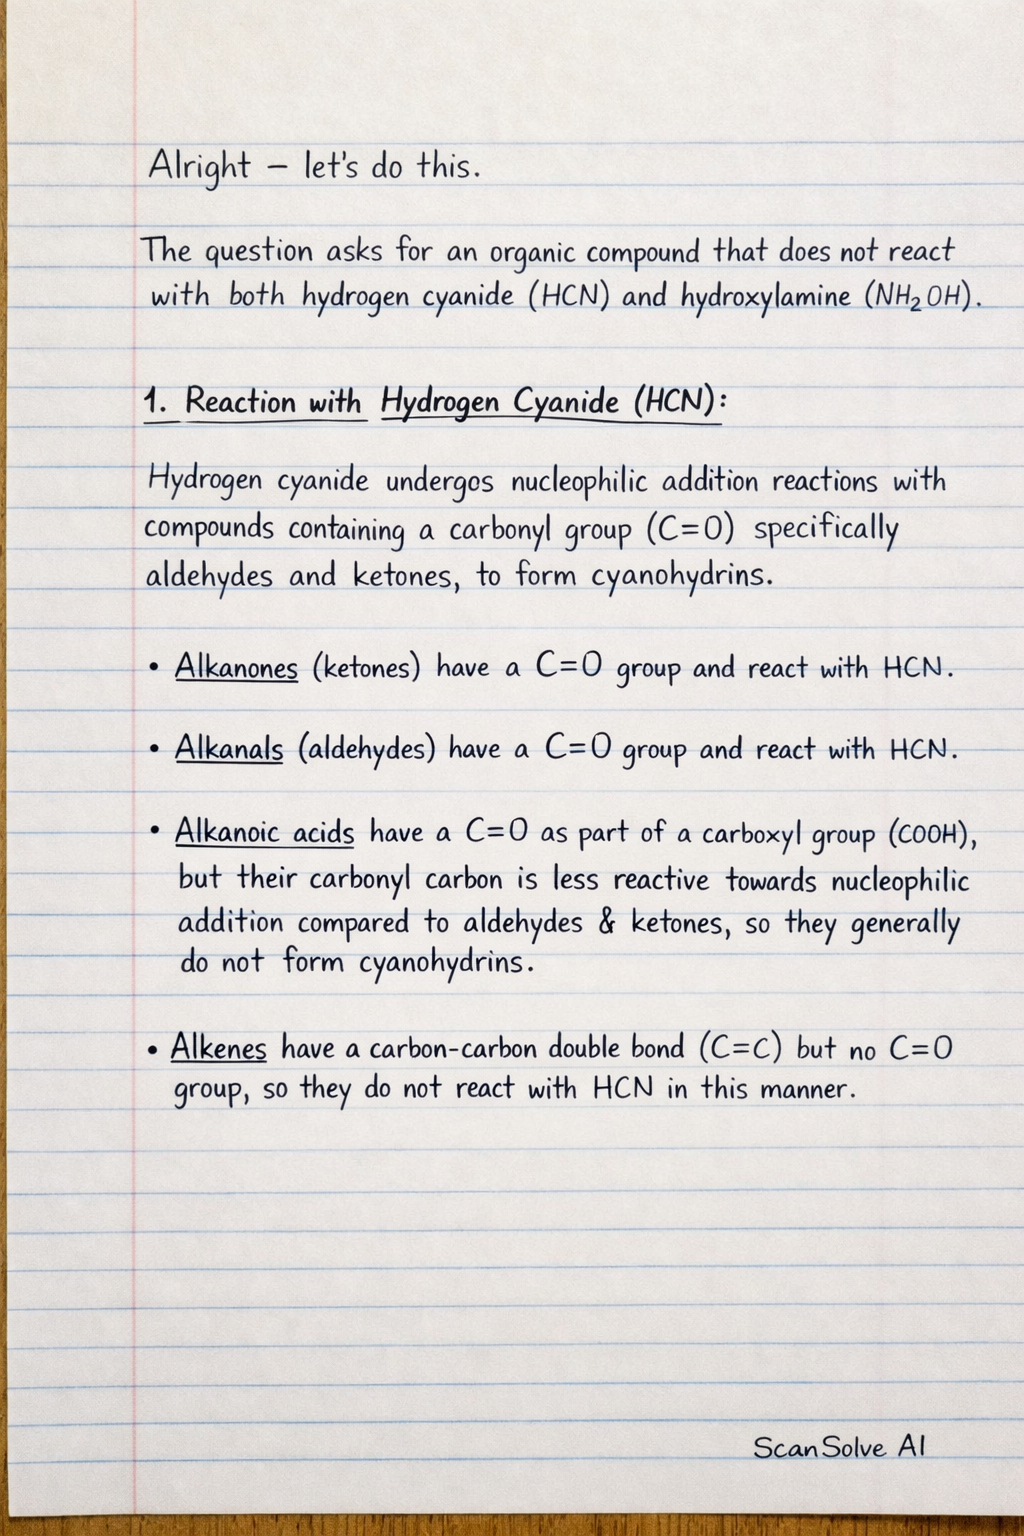 Alright – let's do this.
The question asks for an organic compound that does not react
with both hydrogen cyanide (HCN) and hydroxylamine (NH₂OH).
1. Reaction with Hydrogen Cyanide (HCN):
Hydrogen cyanide undergos nucleophilic addition reactions with
compounds containing a carbonyl group (C=O) specifically
aldehydes and ketones, to form cyanohydrins.
• Alkanones (ketones) have a C=O group and react with HCN.
• Alkanals (aldehydes) have a C=O group and react with HCN.
• Alkanoic acids have a C=O as part of a carboxyl group (COOH),
but their carbonyl carbon is less reactive towards nucleophilic
addition compared to aldehydes & ketones, so they generally
do not form cyanohydrins.
• Alkenes have a carbon-carbon double bond (C=C) but no C=O
group, so they do not react with HCN in this manner.
ScanSolve AI